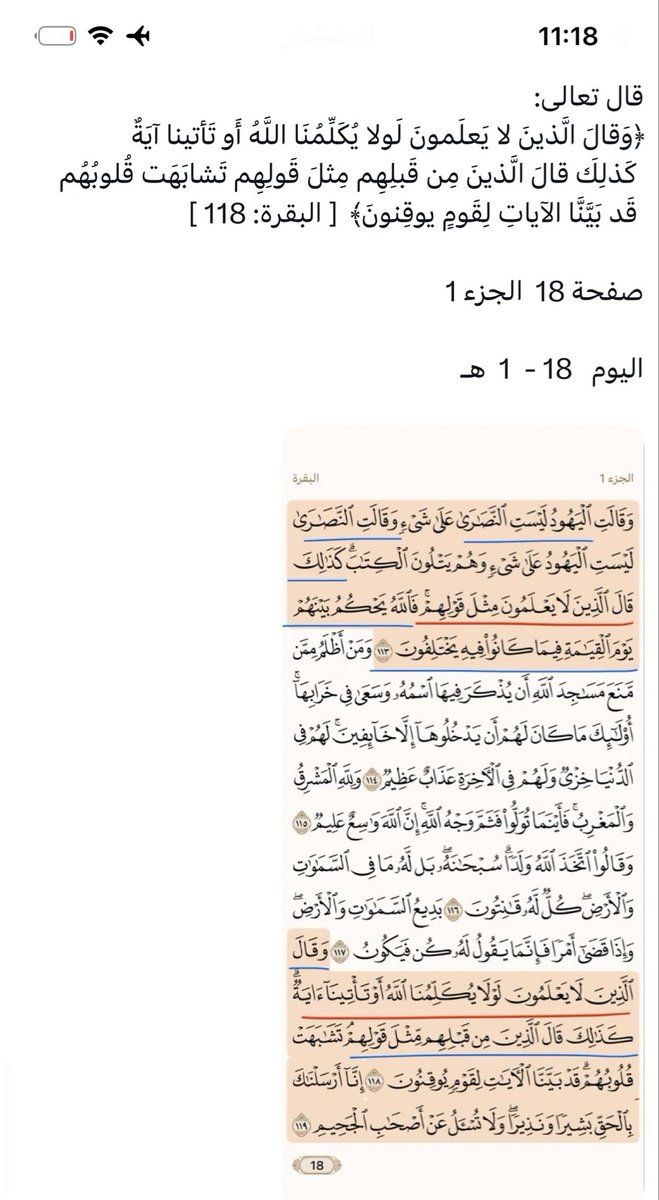 11:18
قال تعالى:
﴿وَقالَ الَّذينَ لا يَعلَمونَ لَولا يُكَلِّمُنَا اللَّهُ أَو تَأتينا آيَةٌ
كَذلِكَ قالَ الَّذينَ مِن قَبلِهِم مِثلَ قَولِهِم تَشابَهَت قُلوبُهُم
قَد بَيَّنَّا الآياتِ لِقَومٍ يوقِنونَ﴾ [ البقرة: 118 ]
صفحة 18 الجزء 1
اليوم 18 - 1 هـ
الجزء 1 البقرة
وَقَالَتِ ٱلْيَهُودُ لَيْسَتِ ٱلنَّصَٰرَىٰ عَلَىٰ شَىْءٍ وَقَالَتِ ٱلنَّصَٰرَىٰ
لَيْسَتِ ٱلْيَهُودُ عَلَىٰ شَىْءٍ وَهُمْ يَتْلُونَ ٱلْكِتَٰبَ ۗ كَذَٰلِكَ
قَالَ ٱلَّذِينَ لَا يَعْلَمُونَ مِثْلَ قَوْلِهِمْ ۚ فَٱللَّهُ يَحْكُمُ بَيْنَهُمْ
يَوْمَ ٱلْقِيَٰمَةِ فِيمَا كَانُوا۟ فِيهِ يَخْتَلِفُونَ ١١٣ وَمَنْ أَظْلَمُ مِمَّن
مَّنَعَ مَسَٰجِدَ ٱللَّهِ أَن يُذْكَرَ فِيهَا ٱسْمُهُۥ وَسَعَىٰ فِى خَرَابِهَآ ۚ
أُو۟لَٰٓئِكَ مَا كَانَ لَهُمْ أَن يَدْخُلُوهَآ إِلَّا خَآئِفِينَ ۚ لَهُمْ فِى
ٱلدُّنْيَا خِزْىٌ وَلَهُمْ فِى ٱلْءَاخِرَةِ عَذَابٌ عَظِيمٌ ١١٤ وَلِلَّهِ ٱلْمَشْرِقُ
وَٱلْمَغْرِبُ ۚ فَأَيْنَمَا تُوَلُّوا۟ فَثَمَّ وَجْهُ ٱللَّهِ ۚ إِنَّ ٱللَّهَ وَٰسِعٌ عَلِيمٌ ١١٥
وَقَالُوا۟ ٱتَّخَذَ ٱللَّهُ وَلَدًا ۗ سُبْحَٰنَهُۥ ۖ بَل لَّهُۥ مَا فِى ٱلسَّمَٰوَٰتِ
وَٱلْأَرْضِ ۖ كُلٌّ لَّهُۥ قَٰنِتُونَ ١١٦ بَدِيعُ ٱلسَّمَٰوَٰتِ وَٱلْأَرْضِ ۖ
وَإِذَا قَضَىٰٓ أَمْرًا فَإِنَّمَا يَقُولُ لَهُۥ كُن فَيَكُونُ ١١٧ وَقَالَ
ٱلَّذِينَ لَا يَعْلَمُونَ لَوْلَا يُكَلِّمُنَا ٱللَّهُ أَوْ تَأْتِينَآ ءَايَةٌ ۗ
كَذَٰلِكَ قَالَ ٱلَّذِينَ مِن قَبْلِهِم مِّثْلَ قَوْلِهِمْ ۘ تَشَٰبَهَتْ
قُلُوبُهُمْ ۗ قَدْ بَيَّنَّا ٱلْءَايَٰتِ لِقَوْمٍ يُوقِنُونَ ١١٨ إِنَّآ أَرْسَلْنَٰكَ
بِٱلْحَقِّ بَشِيرًا وَنَذِيرًا ۖ وَلَا تُسْـَٔلُ عَنْ أَصْحَٰبِ ٱلْجَحِيمِ ١١٩
18